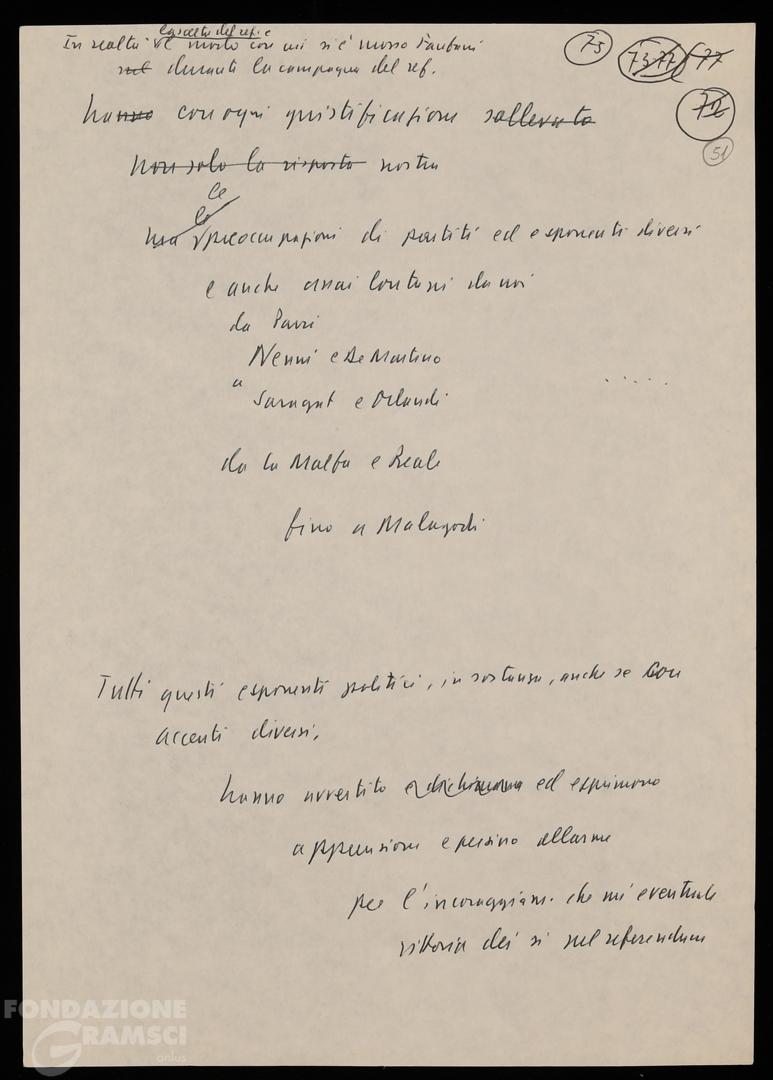 la scelta del ref. e
In realtà il modo con cui si è mosso Fanfani
nel durante la campagna del ref.
hanno con ogni giustificazione sollevato
non solo la risposta nostra
le
la
ma preoccupazioni di partiti ed esponenti diversi
e anche assai lontani da noi
da Parri
Nenni e De Martino
a
Saragat e Orlandi
.....
da La Malfa e Reale
fino a Malagodi
Tutti questi esponenti politici, in sostanza, anche se con
accenti diversi,
hanno avvertito e ed esprimono
apprensione e persino allarme
per l'incoraggiam. che un'eventuale
vittoria dei sì nel referendum
75
73 77
77
72
51
FONDAZIONE
GRAMSCI
onlus